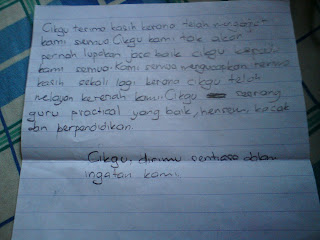 Cikgu terima kasih kerana telah mengajar
kami semua Cikgu kami tak akan
pernah lupakan jasa baik cikgu kepada
kami semua. Kami semua mengucapkan terima
kasih sekali lagi kerana cikgu telah
melayan kerenah kami. Cikgu seorang
guru practical yang baik, hensem, kacak
dan berpendidikan.
Cikgu, dirimu sentiasa dalam
ingatan kami